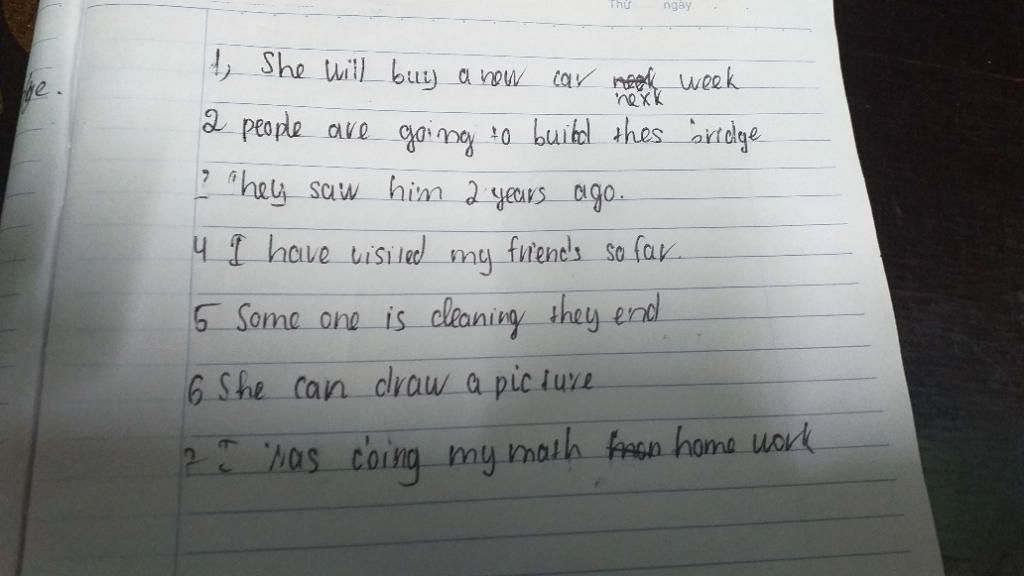 Thứ ngày
ge.
1, She will buy a new car week
nexk
2 people are going to build thes bridge
3 They saw him 2 years ago.
4 I have visited my friends so far.
5 Some one is cleaning they end
6 She can draw a picture
7 I was doing my math home work